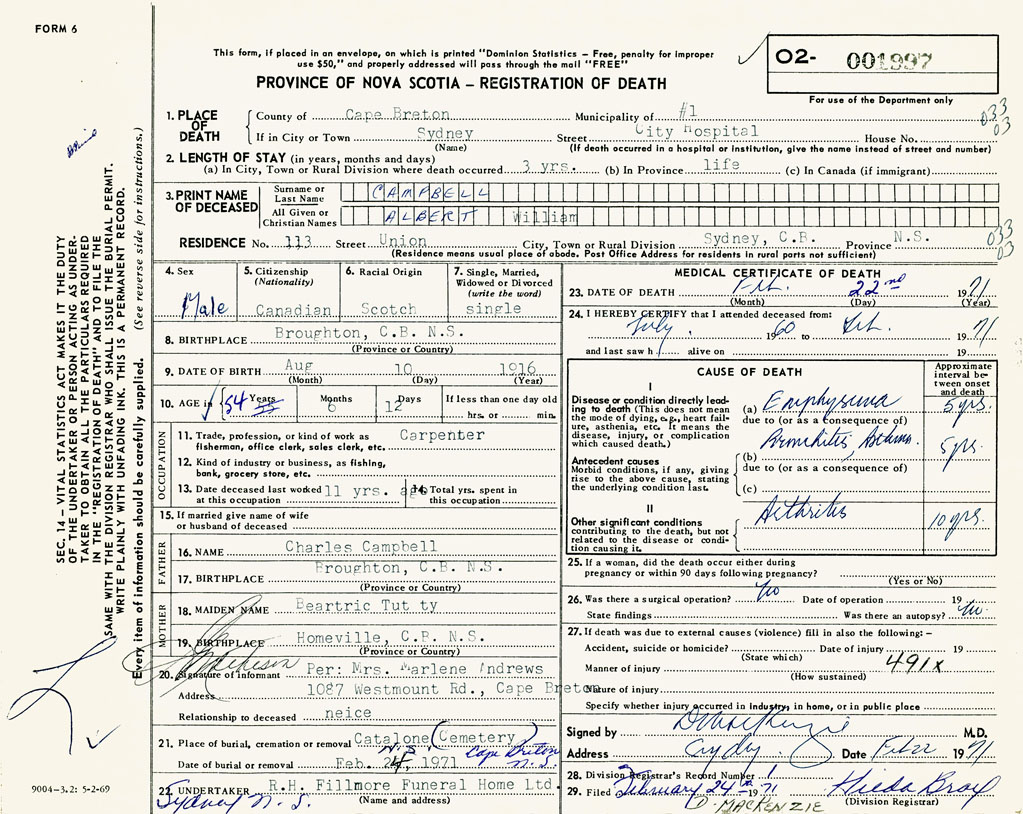 FORM 6
This form, if placed in an envelope, on which is printed "Dominion Statistics – Free, penalty for improper
use $50," and properly addressed will pass through the mail "FREE"
O2- 001997
For use of the Department only
PROVINCE OF NOVA SCOTIA – REGISTRATION OF DEATH
1. PLACE OF DEATH
County of Cape Breton Municipality of #1
If in City or Town Sydney Street City Hospital House No.
(Name) (If death occurred in a hospital or institution, give the name instead of street and number)
033
03
2. LENGTH OF STAY (in years, months and days)
(a) In City, Town or Rural Division where death occurred 3 yrs. (b) In Province life (c) In Canada (if immigrant)
3. PRINT NAME OF DECEASED
Surname or Last Name CAMPBELL
All Given or Christian Names ALBERT William
RESIDENCE No. 113 Street Union City, Town or Rural Division Sydney, C.B. Province N.S.
(Residence means usual place of abode. Post Office Address for residents in rural parts not sufficient)
033
03
4. Sex
Male
5. Citizenship
(Nationality)
Canadian
6. Racial Origin
Scotch
7. Single, Married,
Widowed or Divorced
(write the word)
single
8. BIRTHPLACE Broughton, C.B. N.S.
(Province or Country)
9. DATE OF BIRTH Aug 10 1916
(Month) (Day) (Year)
10. AGE in 54 Years Months 6 Days 12 If less than one day old
hrs. or min.
OCCUPATION
11. Trade, profession, or kind of work as Carpenter
fisherman, office clerk, sales clerk, etc.
12. Kind of industry or business, as fishing,
bank, grocery store, etc.
13. Date deceased last worked 11 yrs. ago
at this occupation
14. Total yrs. spent in
this occupation
15. If married give name of wife
or husband of deceased
FATHER
16. NAME Charles Campbell
17. BIRTHPLACE Broughton, C.B. N.S.
(Province or Country)
MOTHER
18. MAIDEN NAME Beartric Tut ty
19. BIRTHPLACE Homeville, C.B. N.S.
(Province or Country)
20. Signature of informant Per: Mrs. Marlene Andrews
Address 1087 Westmount Rd., Cape Breton
Relationship to deceased neice
21. Place of burial, cremation or removal Catalone (Cemetery)
N.S. Cape Breton N.S.
Date of burial or removal Feb. 24, 1971
22. UNDERTAKER R.H. Fillmore Funeral Home Ltd.
Sydney N.S. (Name and address)
MEDICAL CERTIFICATE OF DEATH
23. DATE OF DEATH Feb. 22nd 1971
(Month) (Day) (Year)
24. I HEREBY CERTIFY that I attended deceased from:
July 1960 to Feb. 1971
and last saw h alive on 19
CAUSE OF DEATH
Approximate
interval be-
tween onset
and death
I
Disease or condition directly lead-
ing to death (This does not mean
the mode of dying, e.g., heart fail-
ure, asthenia, etc. It means the
disease, injury, or complication
which caused death.)
(a) Emphysema 5 yrs.
due to (or as a consequence of)
Bronchitis, Asthma
(b) 5 yrs.
Antecedent causes
Morbid conditions, if any, giving
rise to the above cause, stating
the underlying condition last.
due to (or as a consequence of)
(c)
II
Other significant conditions
contributing to the death, but not
related to the disease or condi-
tion causing it.
Arthritis 10 yrs.
25. If a woman, did the death occur either during
pregnancy or within 90 days following pregnancy?
(Yes or No)
26. Was there a surgical operation? No Date of operation 19
State findings Was there an autopsy? No
27. If death was due to external causes (violence) fill in also the following: –
Accident, suicide or homicide? Date of injury 19
(State which)
Manner of injury 491x
(How sustained)
Nature of injury
Specify whether injury occurred in industry, in home, or in public place
Signed by M.D.
Address Sydney Date Feb 22 1971
28. Division Registrar's Record Number 1
29. Filed February 24th 1971 Hilda
D. MACKENZIE (Division Registrar)
SEC. 14 – VITAL STATISTICS ACT MAKES IT THE DUTY
OF THE UNDERTAKER OR PERSON ACTING AS UNDER-
TAKER TO OBTAIN ALL THE PARTICULARS REQUIRED
IN THE "REGISTRATION OF DEATH" AND TO FILE THE
SAME WITH THE DIVISION REGISTRAR WHO SHALL ISSUE THE BURIAL PERMIT.
WRITE PLAINLY WITH UNFADING INK. THIS IS A PERMANENT RECORD.
Every item of information should be carefully supplied. (See reverse side for instructions.)
9004-3.2: 5-2-69